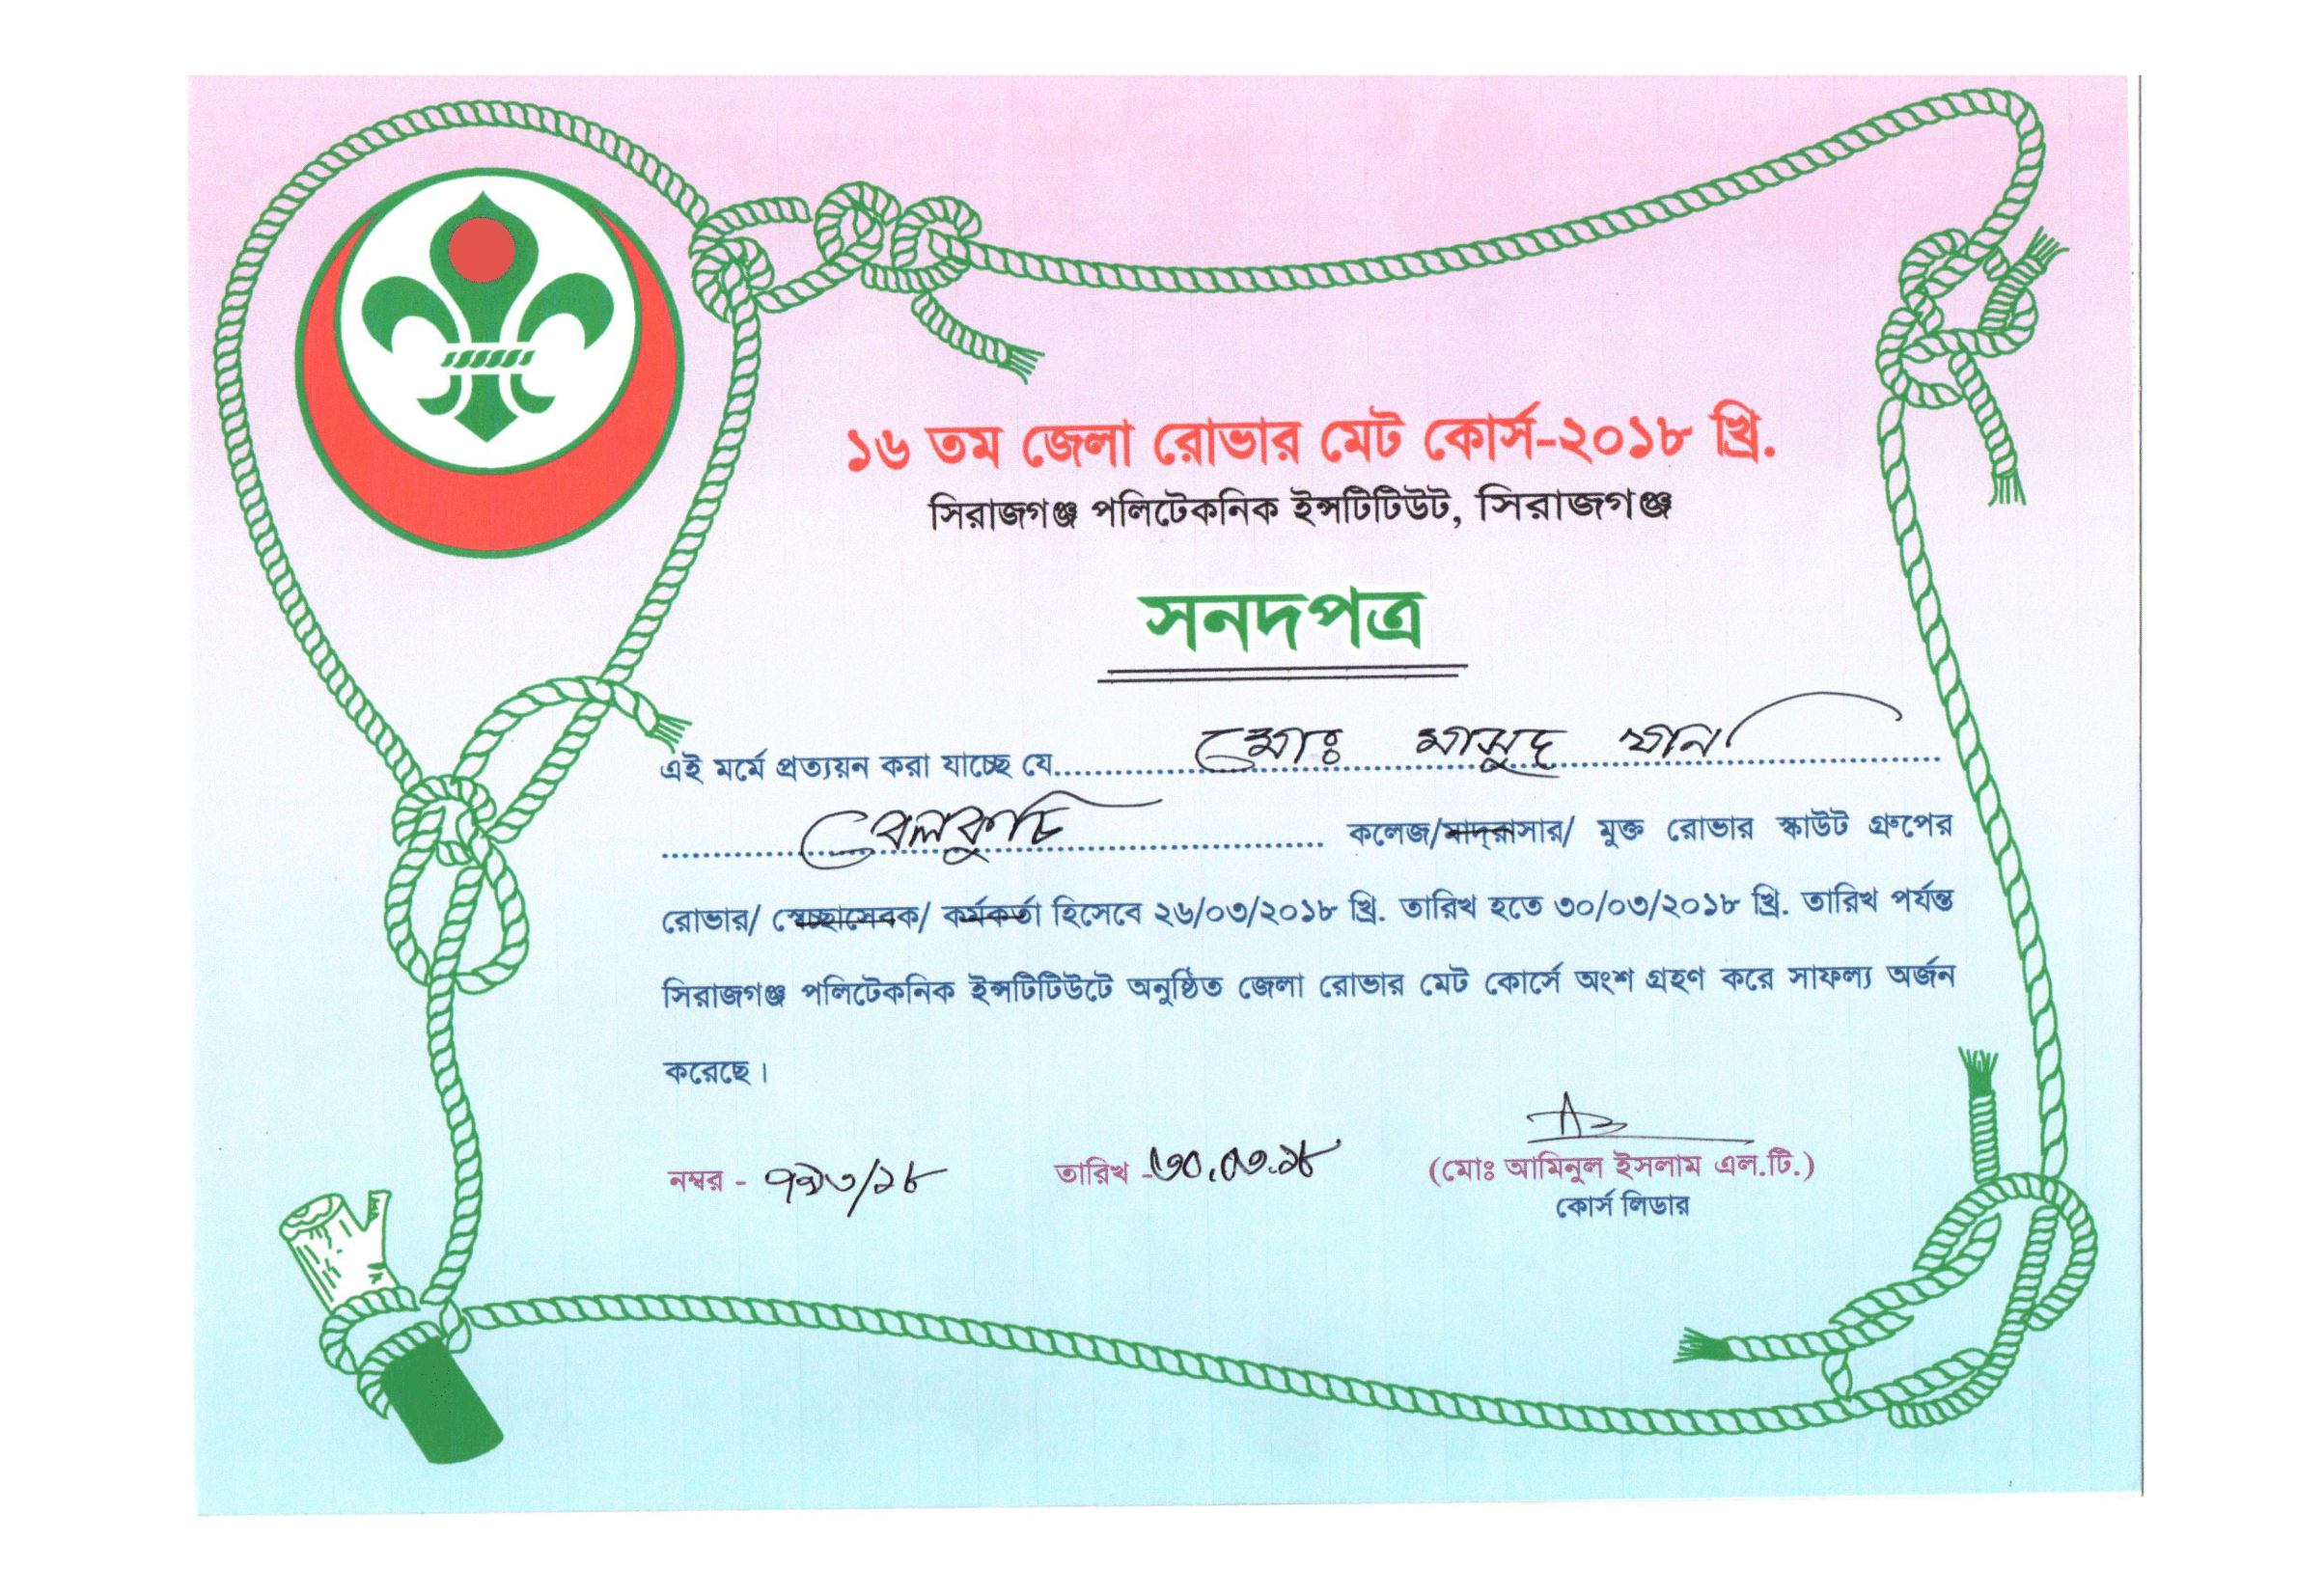 ১৬ তম জেলা রোভার মেট কোর্স-২০১৮ খ্রি.
সিরাজগঞ্জ পলিটেকনিক ইন্সটিটিউট, সিরাজগঞ্জ
সনদপত্র
এই মর্মে প্রত্যয়ন করা যাচ্ছে যে.......... মোঃ মাসুদ খান ..........
.......... বেলকুচি .......... কলেজ/মাদ্রাসার/ মুক্ত রোভার স্কাউট গ্রুপের
রোভার/ স্বেচ্ছাসেবক/ কর্মকর্তা হিসেবে ২৬/০৩/২০১৮ খ্রি. তারিখ হতে ৩০/০৩/২০১৮ খ্রি. তারিখ পর্যন্ত
সিরাজগঞ্জ পলিটেকনিক ইন্সটিটিউটে অনুষ্ঠিত জেলা রোভার মেট কোর্সে অংশ গ্রহণ করে সাফল্য অর্জন
করেছে।
নম্বর - ৭৯৩/১৮ তারিখ - ৩০.০৩.১৮ (মোঃ আমিনুল ইসলাম এল.টি.)
কোর্স লিডার